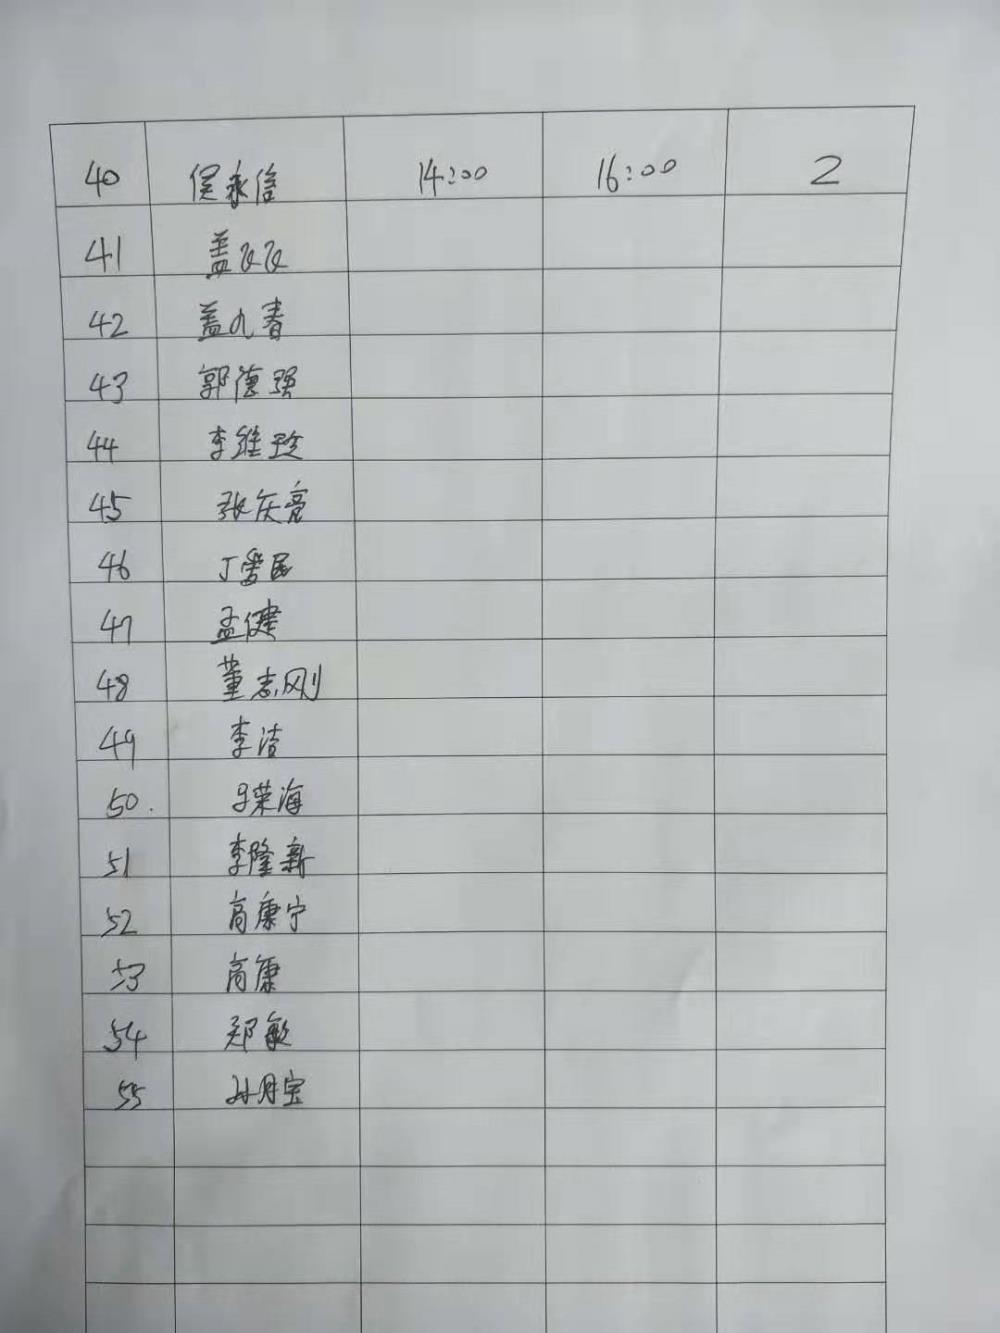 40 侯永信 14:00 16:00 2
41 盖
42 盖九春
43 郭德强
44 李维
45 张庆亮
46 丁爱民
47 孟健
48 董志刚
49 李洁
50. 荣海
51 李隆新
52 高康宁
53 高康
54 郑敏
55 孙月宝